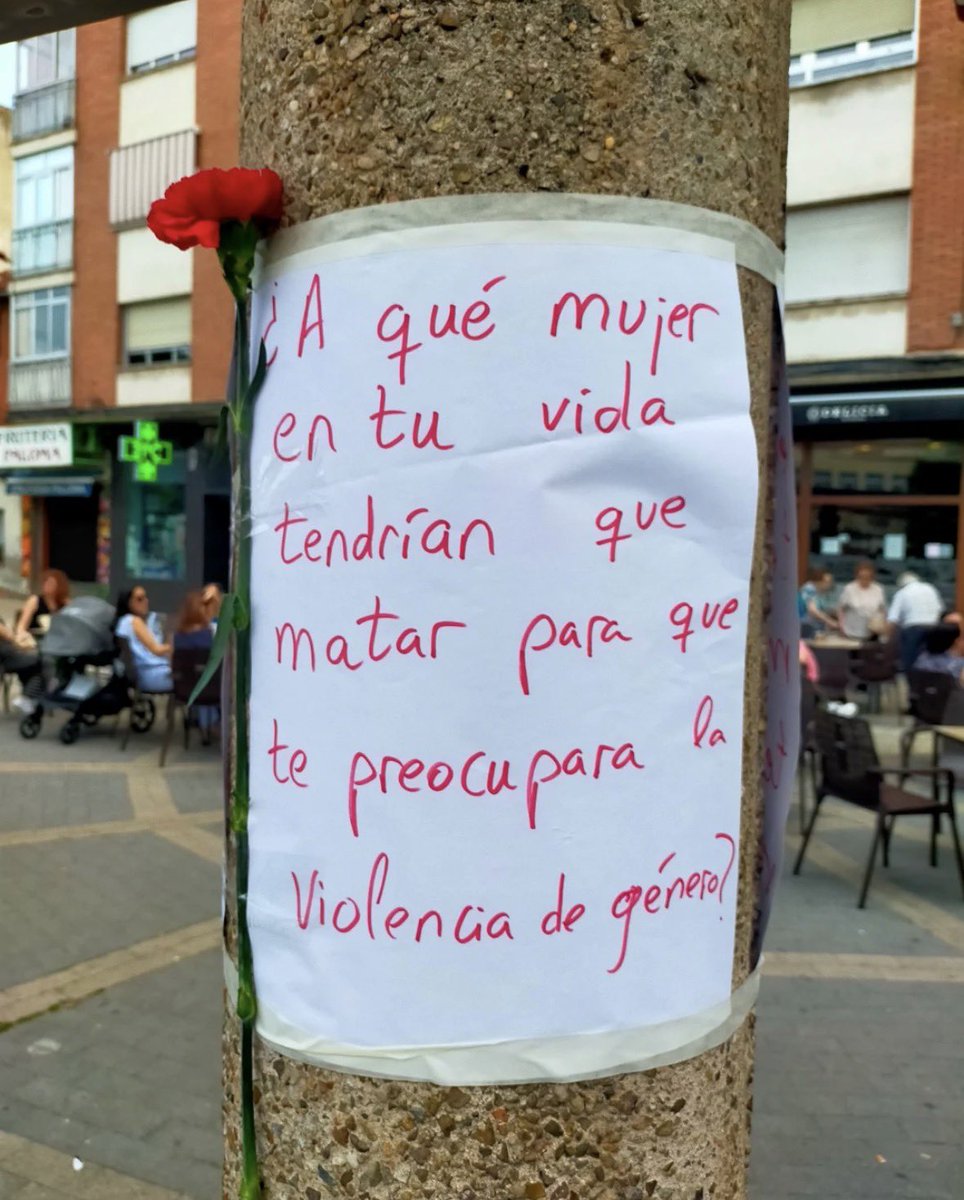 ¿A qué mujer
en tu vida
tendrían que
matar para que
te preocupara la
Violencia de género?
FRUTERIA
PALOMA